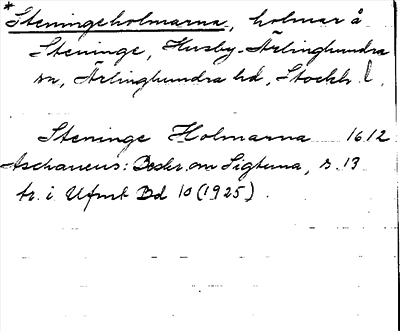 *Steningeholmarna, holmar å
Steninge, Husby-Ärlinghundra
sn, Ärlinghundra hd, Stockh. l.
Steninge Holmarna 1612
Aschaneus: Beskr. om Sigtuna, s. 13
tr. i Ufmt Bd 10 (1925).